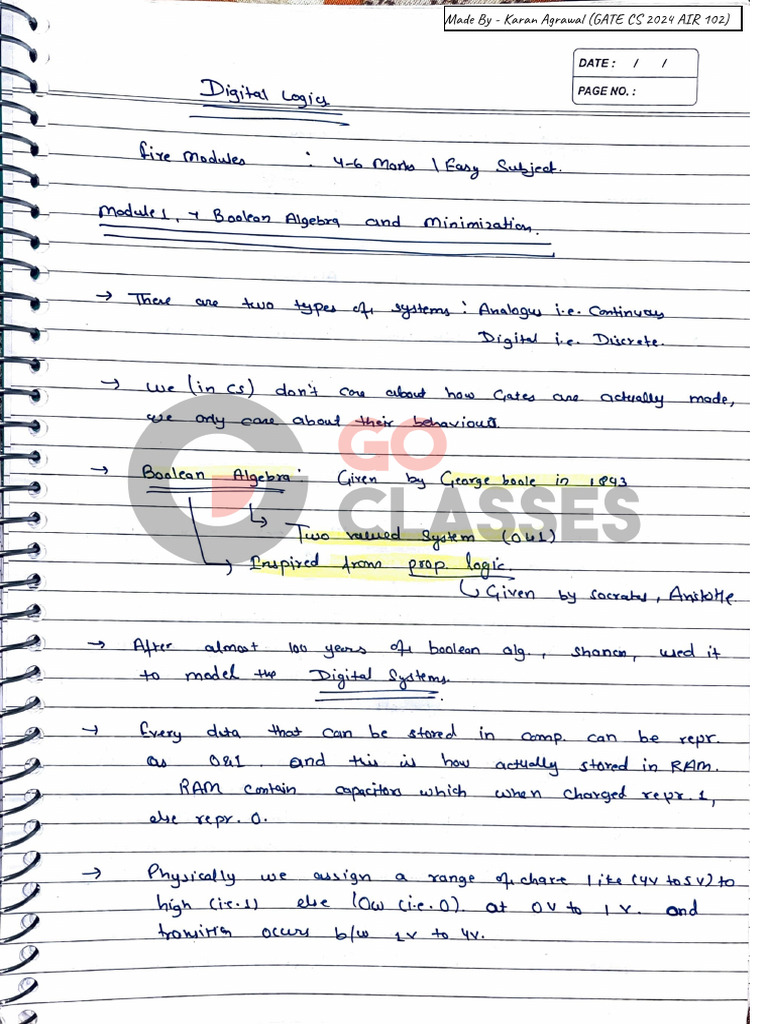 Made By - Karan Agrawal (GATE CS 2024 AIR 102)
DATE : / /
PAGE NO. :
Digital Logics
Five Modules : 4-6 Marks | Easy Subject.
Module 1. → Boolean Algebra and Minimization.
→ There are two types of systems : Analogus i.e. Continuous
Digital i.e. Discrete.
→ We (in CS) don't care about how Gates are actually made,
we only care about their behaviour.
GO
CLASSES
→ Boolean Algebra : Given by George boole in 1843
↳ Two valued System (0&1)
↳ Inspired from prop. logic.
↳ Given by Socrates, Aristotle
→ After almost 100 years of boolean alg., shanon, used it
to model the Digital Systems.
→ Every data that can be stored in comp. can be repr.
as 0&1. and this is how actually stored in RAM.
RAM contain capacitors which when charged repr. 1,
else repr. 0.
→ Physically we assign a range of charge like (4V to 5V) to
high (i.e. 1) else low (i.e. 0). at 0V to 1V. and
transition occurs b/w 1V to 4V.